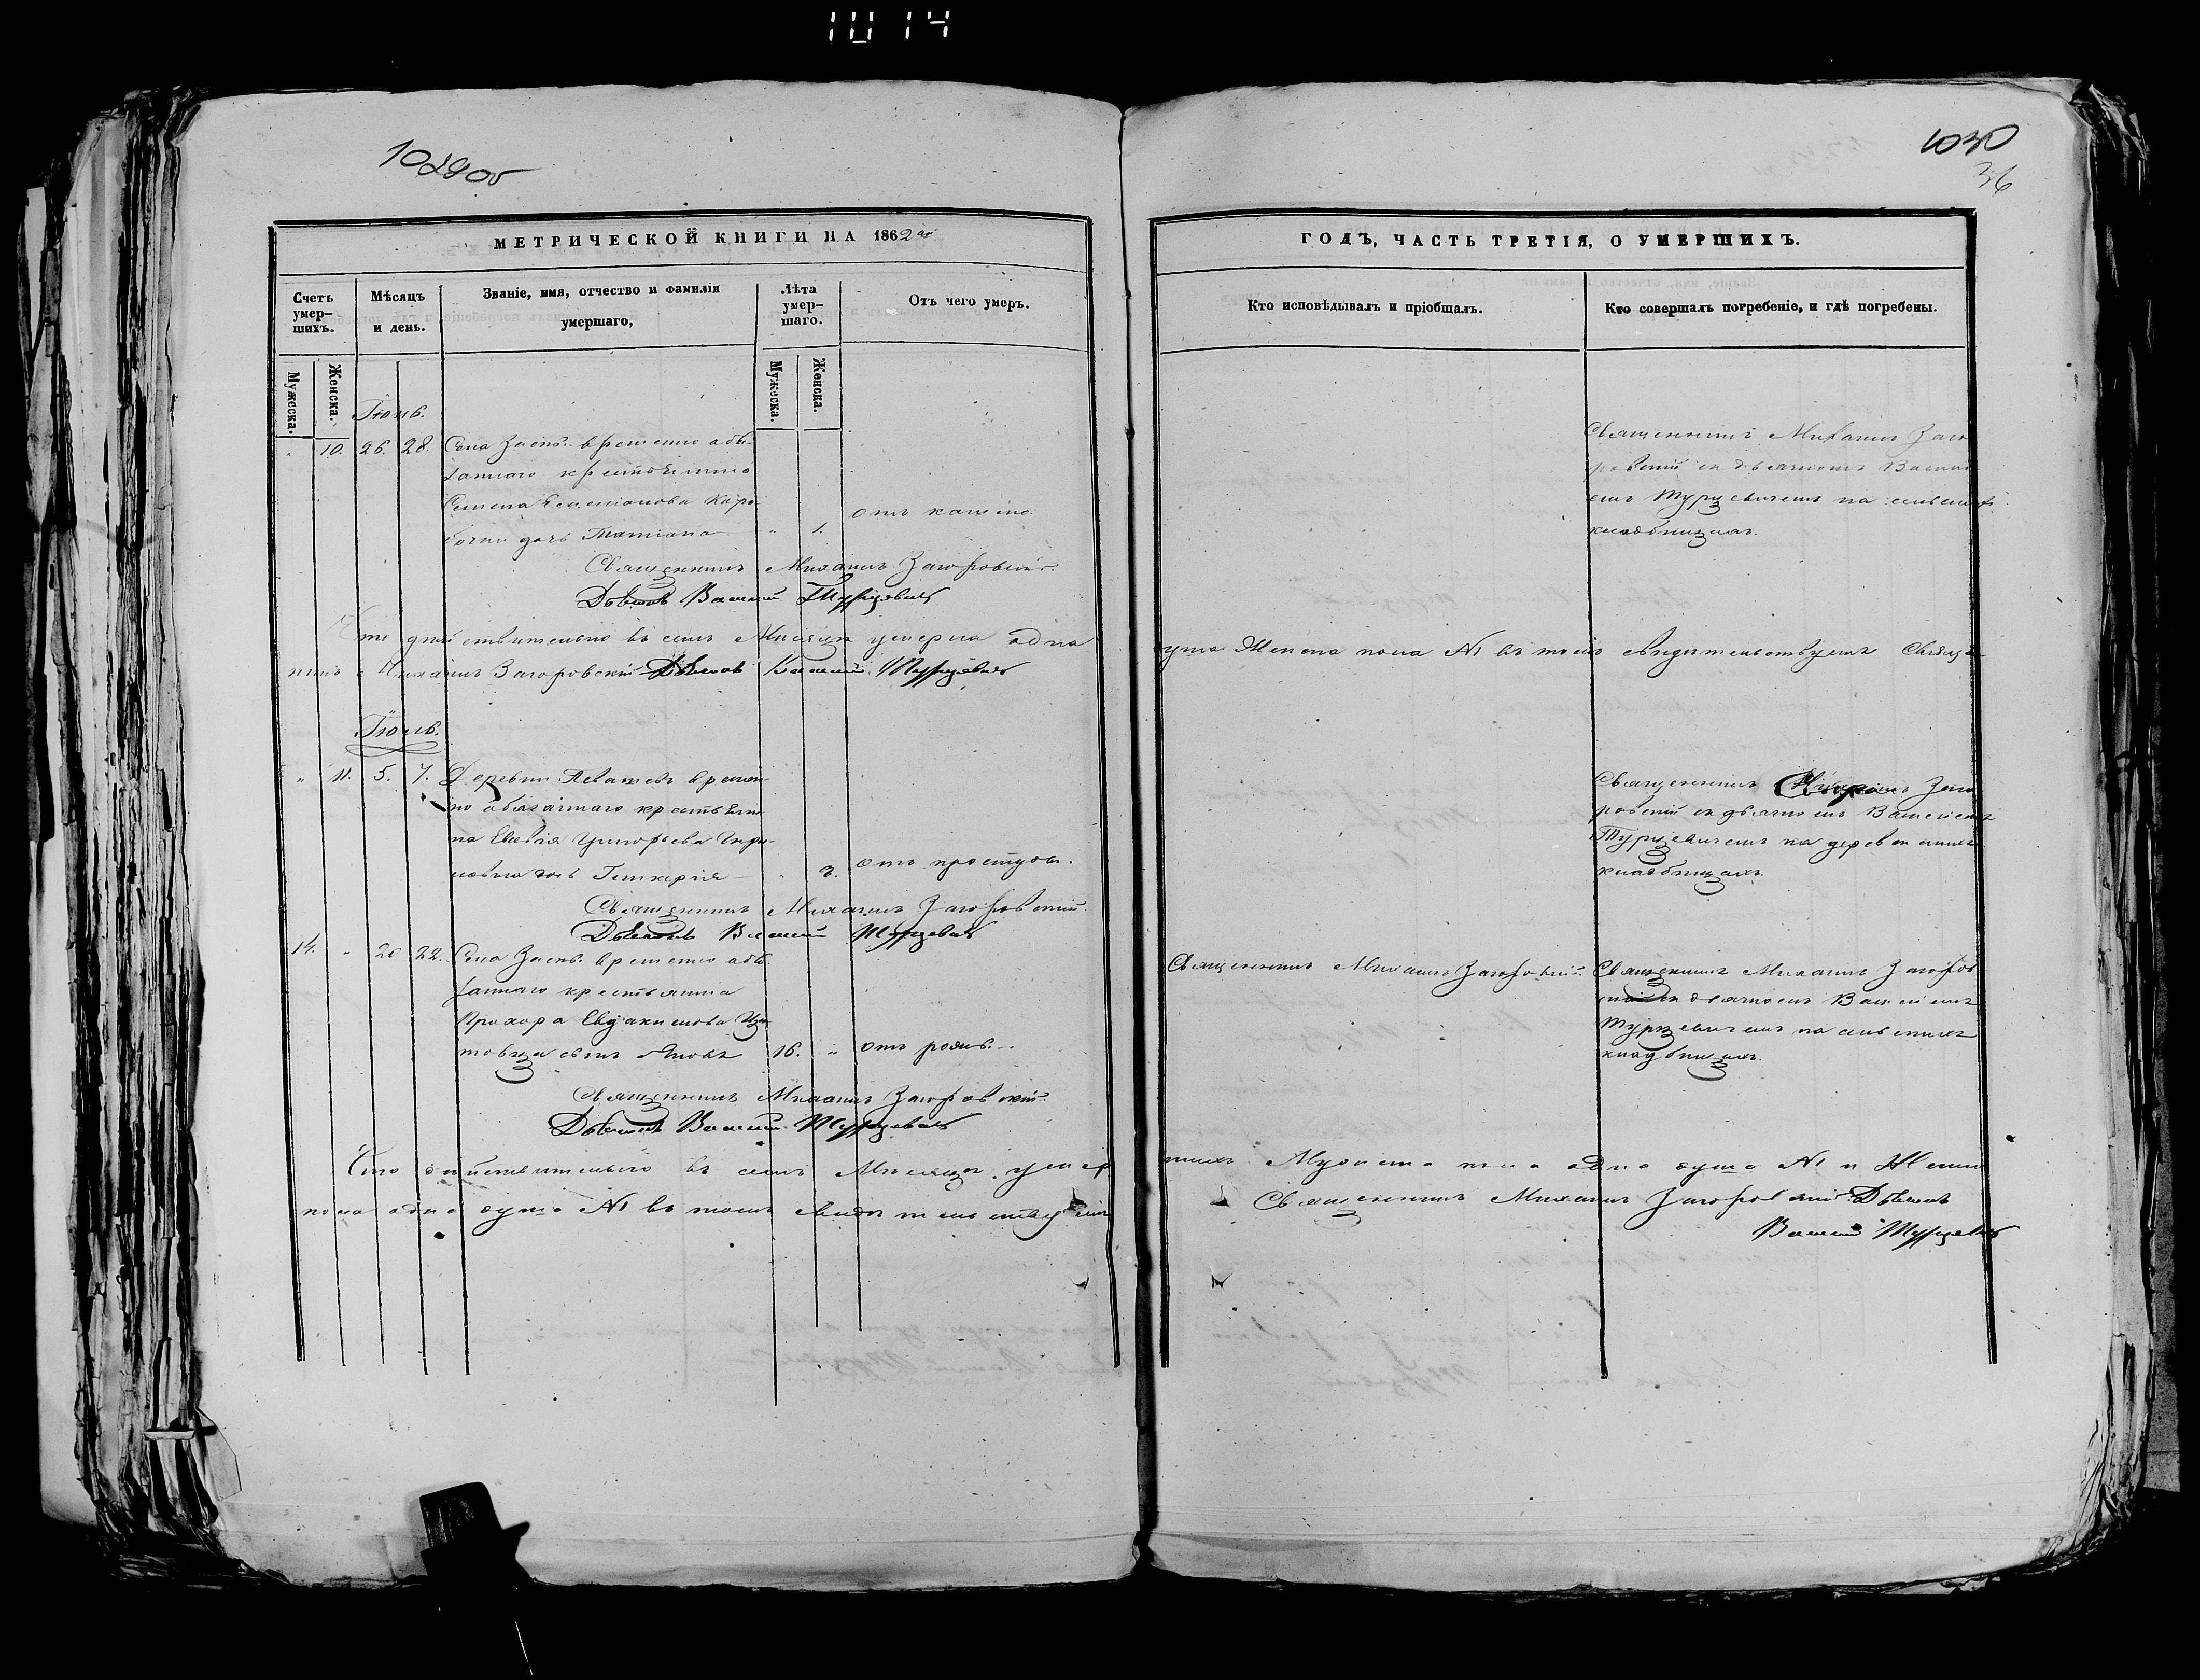 1014
1029об
1030
36
МЕТРИЧЕСКОЙ КНИГИ НА 1862го
ГОДЪ, ЧАСТЬ ТРЕТІЯ, О УМЕРШИХЪ.
Счетъ умер-
шихъ.
Мѣсяцъ
и день.
Званіе, имя, отчество и фамилія
умершаго,
Лѣта
умер-
шаго.
Отъ чего умеръ.
Кто исповѣдывалъ и пріобщалъ.
Кто совершалъ погребеніе, и гдѣ погребены.
Мужеска.
Женска.
Мужеска.
Женска.
Іюнь.
" 10. 26. 28. Села временно обя-
заннаго крестьянина
Семена Емеліанова
дочь Татіана " 1. отъ кашлю.
Священникъ Михаилъ Заго
ровскій съ дьячкомъ Васили
емъ Турцевичемъ на сельскихъ
кладбищахъ.
Священникъ Михаилъ Загоровскій.
Дьячокъ Василій Турцевичъ
Что дѣйствительно въ семъ Мѣсяцѣ умерла одна
душа Женска пола №1 въ томъ свидѣтельствуемъ Священ
никъ Михаилъ Загоровскій Дьячокъ Василій Турцевичъ
Іюль.
" 11. 5. 7. Деревни времен-
но обязаннаго крестьяни
на Григорьева
дочь Гликерія " 3. отъ простуды.
Священникъ Михаилъ Заго
ровскій съ дьячкомъ Василіемъ
Турцевичемъ на деревенскихъ
кладбищахъ.
Священникъ Михаилъ Загоровскій.
Дьячокъ Василій Турцевичъ
14. " 20 22. Села временно обя
заннаго крестьянина
Прохора Евдакимова
сынъ Яковъ 16. " отъ рожи.
Священникъ Михаилъ Загоровскій.
Священникъ Михаилъ Загоров
скій съ дьячкомъ Василіемъ
Турцевичемъ на сельскихъ
кладбищахъ.
Священникъ Михаилъ Загоровскій.
Дьячокъ Василій Турцевичъ
Что дѣйствительно въ семъ Мѣсяцѣ умер
шихъ Мужеска пола одна душа №1 и Женска
пола одна душа №1 въ томъ свидѣтельствуемъ
Священникъ Михаилъ Загоровскій Дьячокъ
Василій Турцевичъ